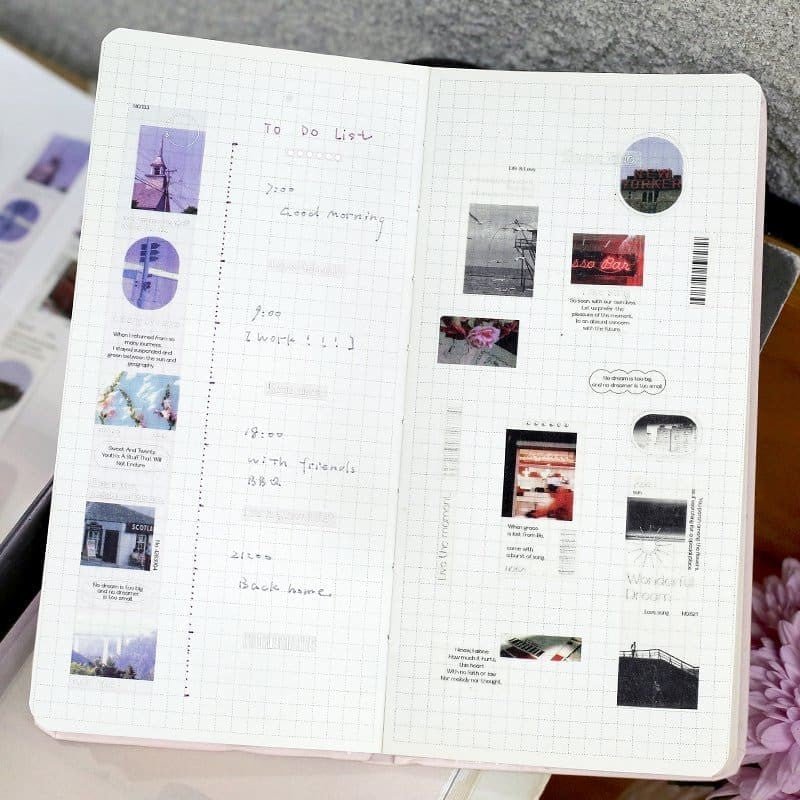 NO183
TO DO LIST
7:00
Good morning
9:00
[ work ! ! ! ]
18:00
with friends
BBQ
21:00
Back home
When I returned from so
many journeys,
I stayed suspended and
green between the sun and
geography.
Sweet And Twenty
Youth's A Stuff That Will
Not Endure
SCOTL
No dream is too big
and no dreamer
is too small
Life & Love
NEW
YORKER
sso Bar
So soon, with our own lives,
Let us prefer the
pleasure of the moment,
to an absurd concern
with the future.
No dream is too big,
and no dreamer is too small
Live the moment
When grace
is lost from life,
come with
a burst of song.
Wonderful
Dream
Love song
NO521
I know, I alone
How much it hurts,
this heart
With no faith or law
Nor melody nor thought.